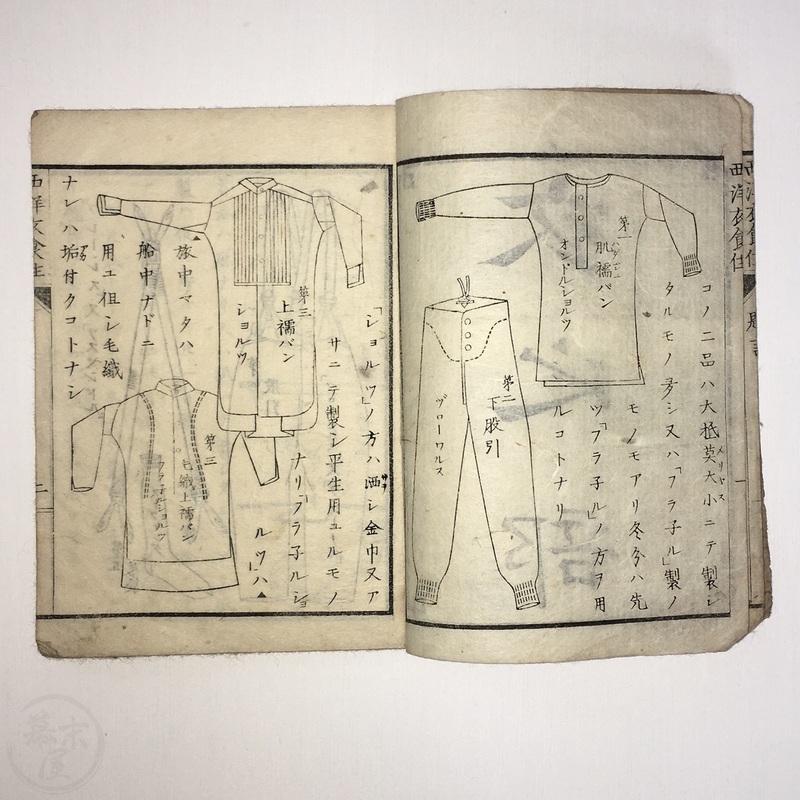 西洋衣食住
コノ二品ハ大抵莫大小ニテ製シ
メリヤス
タルモノ多シ又ハ「フラ子ル」製ノ
モノモアリ冬分ハ先
ツ「フラ子ル」ノ方ヲ用
ルコトナリ
第一
肌襦パン
オンドルショルツ
第二
下股引
ヅローワルス
「ショルツ」ノ方ハ洒シ金巾又ア
サニテ製シ平生用ユールモノ
ナリ「フラ子ルショ
ルツ」ハ▲
第三
上襦パン
ショルツ
▲旅中マタハ
船中ナドニ
用ユ但シ毛織
ナレハ垢付クコトナシ
第三
毛織上襦パン
フラ子ルショルツ
西洋衣食住
幕末屋